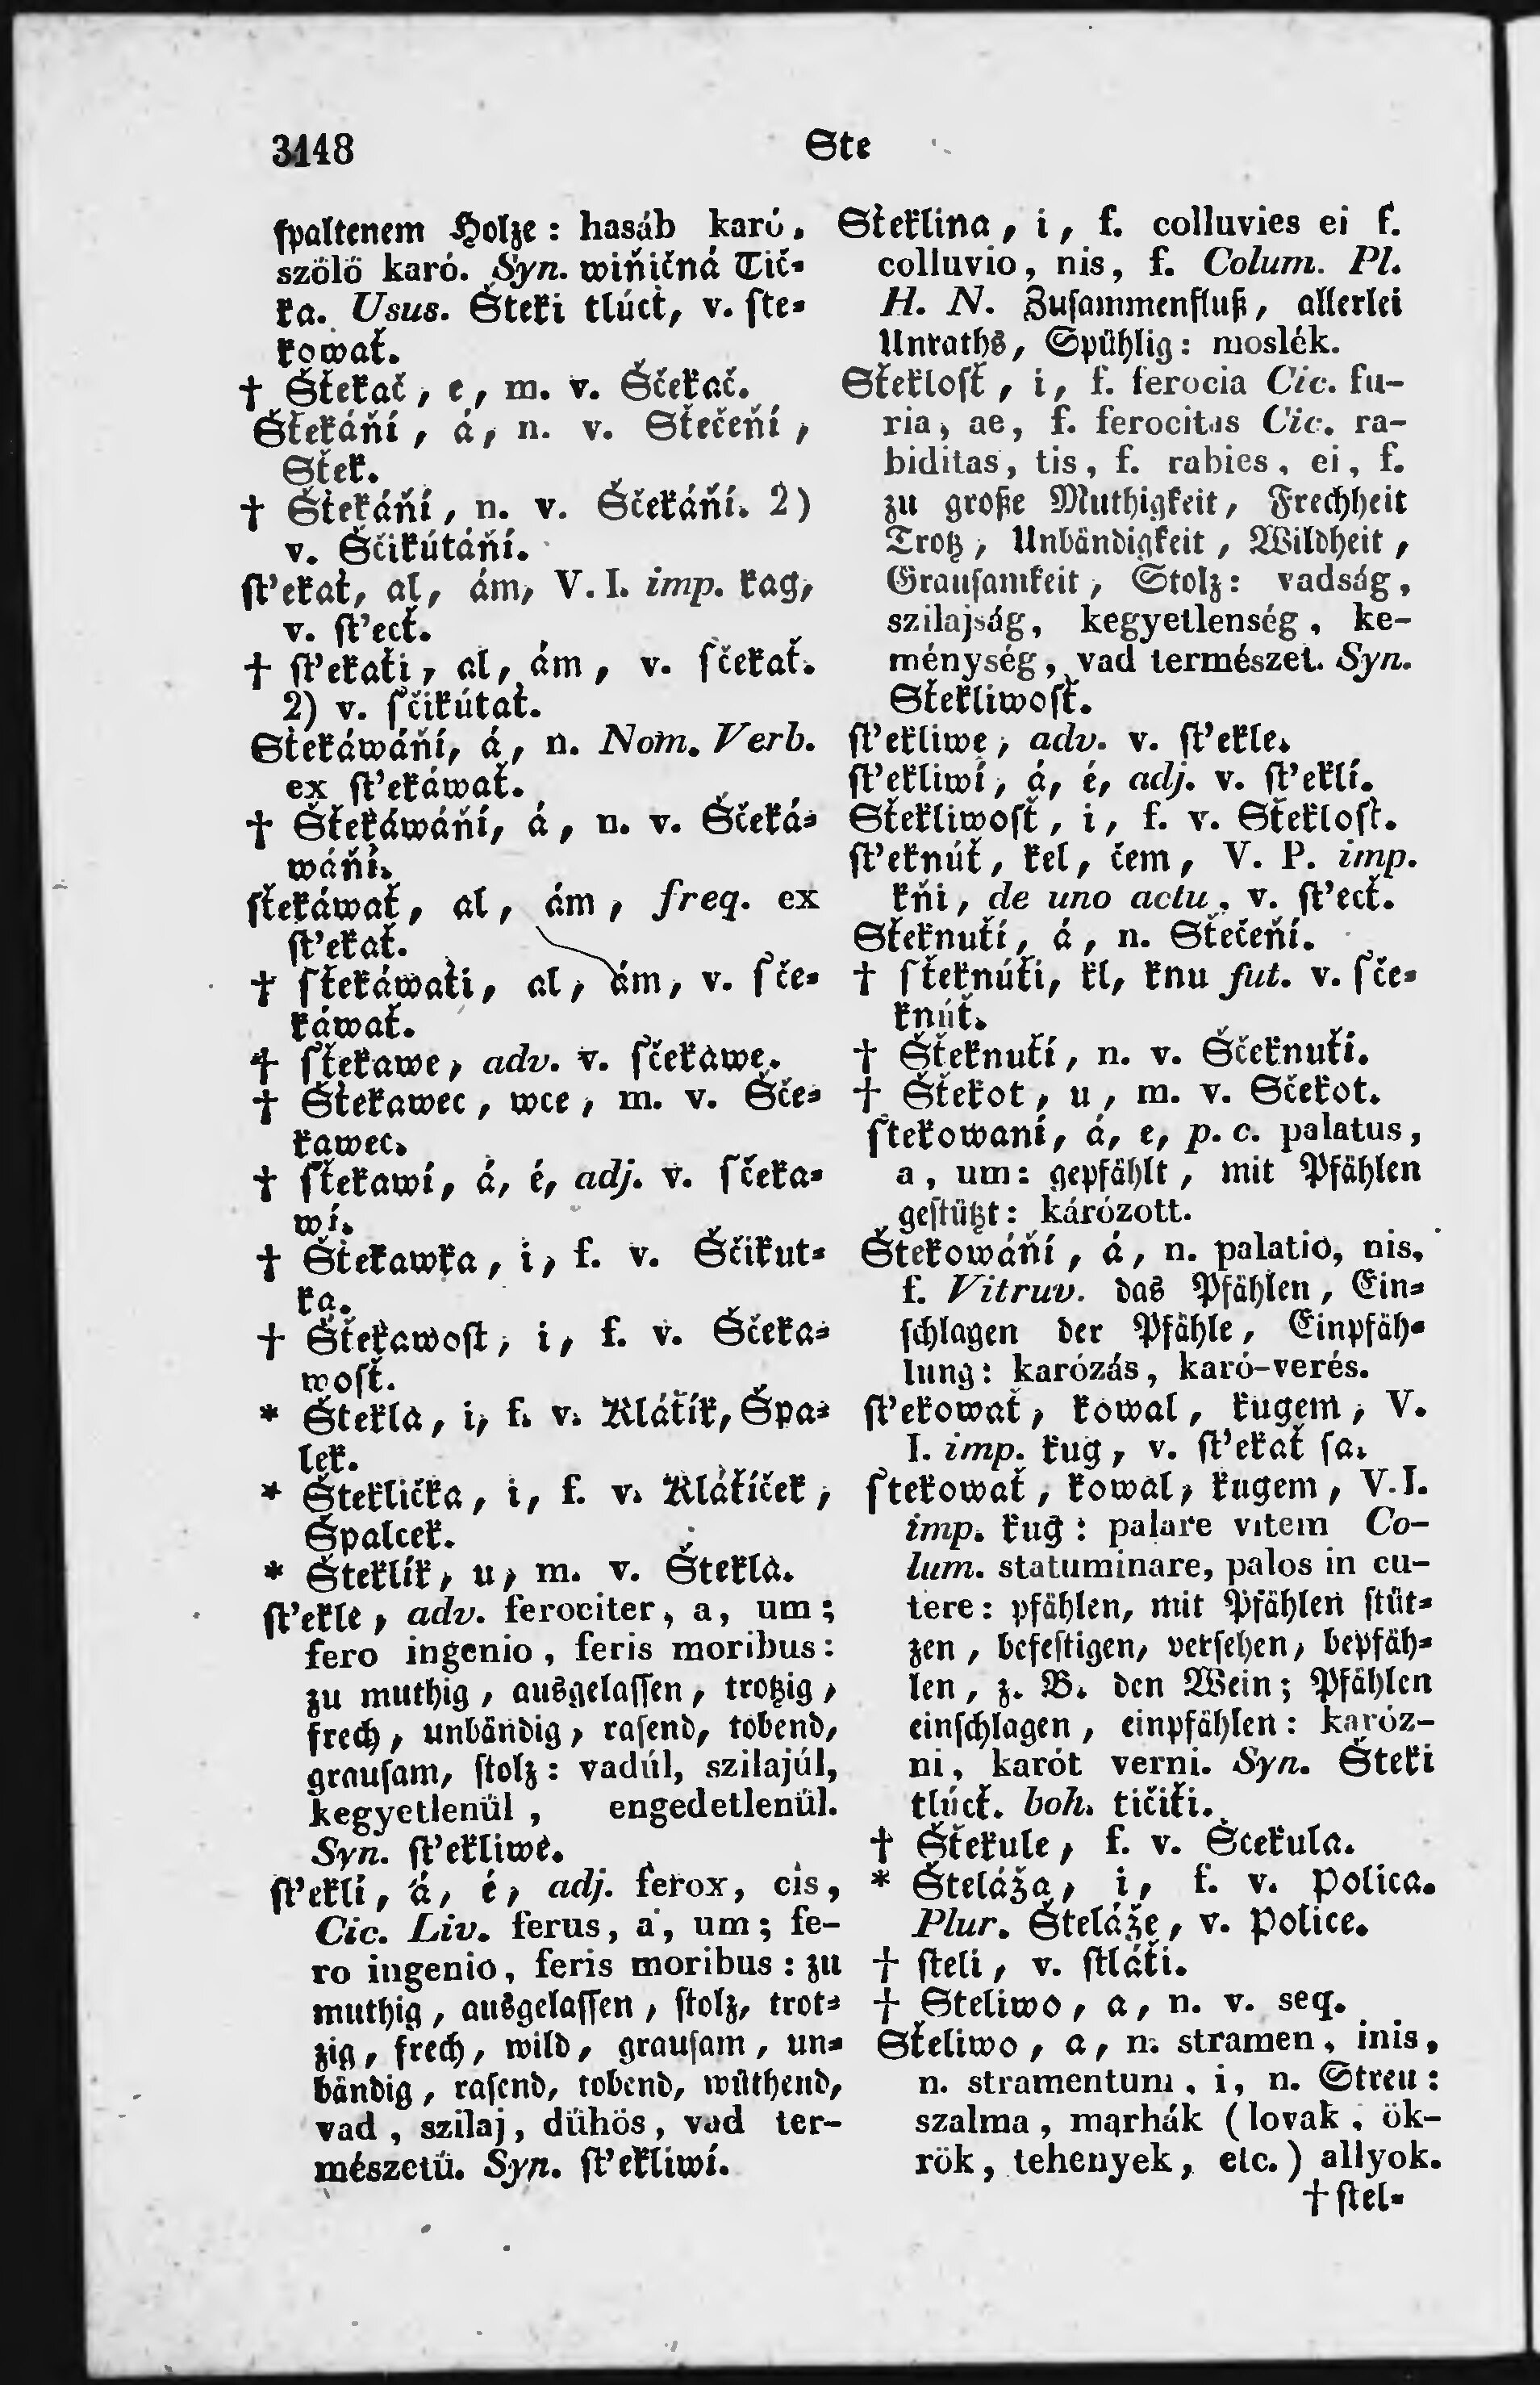 3148
Ste
spaltenem Holze: hasáb karó,
szölö karó. Syn. wiňičná Tič-
ka. Usus. Šteki tlúct, v. šte-
kowať.
† Šťekač, e, m. v. Ščekač.
Šťekáňí, á, n. v. Stečeňí,
Sťek.
† Šťekáňí, n. v. Ščekáňí. 2)
v. Ščikútáňí.
sť'ekať, al, ám, V. I. imp. kag,
v. sť'ecť.
† sť'ekaťi, al, ám, v. ščekať.
2) v. ščikútať.
Sťekáwáňí, á, n. Nom. Verb.
ex sť'ekáwať.
† Šťekáwáňí, á, n. v. Ščeká-
wáňí.
sťekáwať, al, ám, freq. ex
sť'ekať.
† šťekáwaťi, al, ám, v. šče-
káwať.
† šťekawe, adv. v. ščekawe.
† Šťekawec, wce, m. v. Šče-
kawec.
† šťekawí, á, é, adj. v. ščeka-
wí.
† Šťekawka, i, f. v. Ščikut-
ka.
† Šťekawost, i, f. v. Ščeka-
wosť.
* Štekla, i, f. v. Kláťík, Špa-
lek.
* Šteklička, i, f. v. Kláťíček,
Špalcek.
* Šteklík, u, m. v. Štekla.
sť'ekle, adv. ferociter, a, um;
fero ingenio, feris moribus:
zu muthig, ausgelassen, trotzig,
frech, unbändig, rasend, tobend,
grausam, stolz: vadúl, szilajúl,
kegyetlenül, engedetlenül.
Syn. sť'ekliwe.
sť'eklí, á, é, adj. ferox, cis,
Cic. Liv. ferus, a, um; fe-
ro ingenio, feris moribus: zu
muthig, ausgelassen, stolz, trot-
zig, frech, wild, grausam, un-
bändig, rasend, tobend, wüthend,
vad, szilaj, dühös, vad ter-
mészetü. Syn. sť'ekliwí.
Sťeklina, i, f. colluvies ei f.
colluvio, nis, f. Colum. Pl.
H. N. Zusammenfluß, allerlei
Unraths, Spühlig: moslék.
Sťeklosť, i, f. ferocia Cic. fu-
ria, ae, f. ferocitas Cic. ra-
biditas, tis, f. rabies, ei, f.
zu große Muthigkeit, Frechheit
Trotz, Unbändigkeit, Wildheit,
Grausamkeit, Stolz: vadság,
szilajság, kegyetlenség, ke-
ménység, vad természet. Syn.
Sťekliwosť.
sť'ekliwe, adv. v. sť'ekle.
sť'ekliwí, á, é, adj. v. sť'eklí.
Sťekliwosť, i, f. v. Sťeklosť.
sť'eknúť, kel, čem, V. P. imp.
kňi, de uno actu, v. sť'ecť.
Sťeknuťí, á, n. Stečeňí.
† šťeknúťi, kl, knu fut. v. šče-
knúť.
† Šťeknuťí, n. v. Ščeknuťí.
† Šťekot, u, m. v. Ščekot.
štekowaní, á, e, p. c. palatus,
a, um: gepfählt, mit Pfählen
gestützt: kárózott.
Štekowáňí, á, n. palatio, nis,
f. Vitruv. das Pfählen, Ein-
schlagen der Pfähle, Einpfäh-
lung: karózás, karó-verés.
sť'ekowať, kowal, kugem, V.
I. imp. kug, v. sť'ekať sa.
štekowať, kowal, kugem, V. I.
imp. kug: palare vitem Co-
lum. statuminare, palos in cu-
tere: pfählen, mit Pfählen stüt-
zen, befestigen, versehen, bepfäh-
len, z. B. den Wein; Pfählen
einschlagen, einpfählen: karóz-
ni, karót verni. Syn. Šteki
tlúcť. boh. tičiťi.
† Šťekule, f. v. Šcekula.
* Šteláža, i, f. v. Polica.
Plur. Šteláže, v. Police.
† steli, v. stláťi.
† Steliwo, a, n. v. seq.
Sťeliwo, a, n. stramen, inis,
n. stramentum, i, n. Streu:
szalma, marhák (lovak, ök-
rök, tehenyek, etc.) allyok.
† stel-